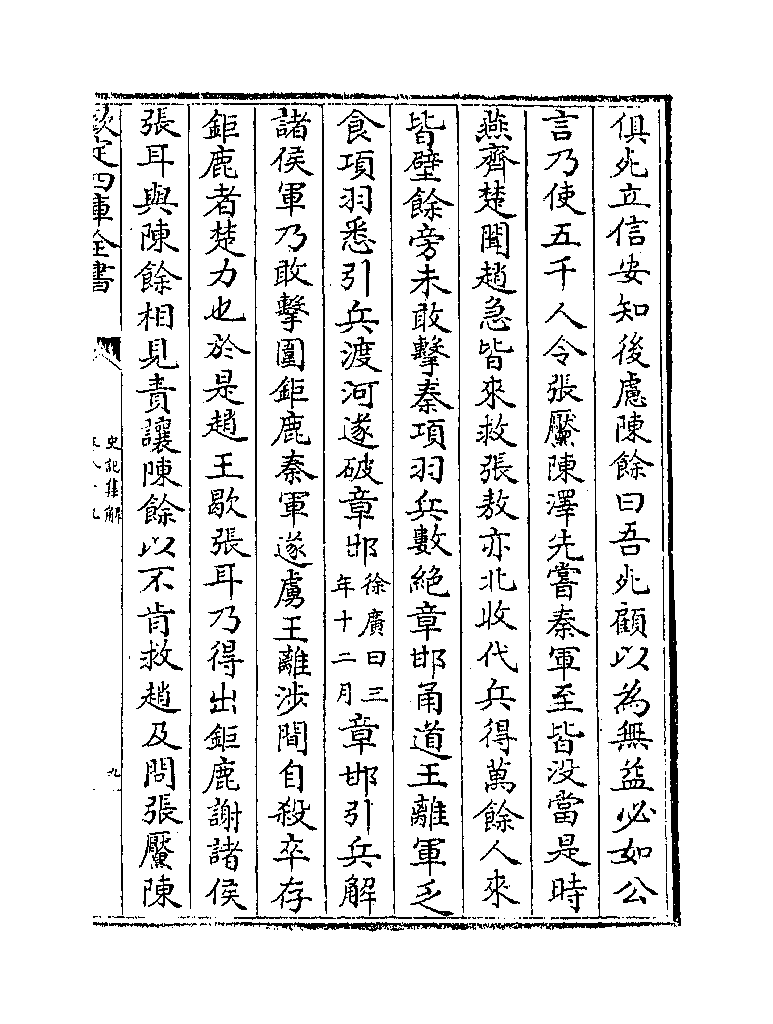 俱死立信安知後慮陳餘曰吾死顧以為無益必如公
言乃使五千人令張黶陳澤先嘗秦軍至皆没當是時
燕齊楚聞趙急皆來救張敖亦北收代兵得萬餘人來
皆壁餘旁未敢擊秦項羽兵數絶章邯甬道王離軍乏
食項羽悉引兵渡河遂破章邯徐廣曰三年十二月章邯引兵解
諸侯軍乃敢擊圍鉅鹿秦軍遂虜王離涉間自殺卒存
鉅鹿者楚力也於是趙王歇張耳乃得出鉅鹿謝諸侯
張耳與陳餘相見責讓陳餘以不肯救趙及問張黶陳
欽定四庫全書
史記集解
九